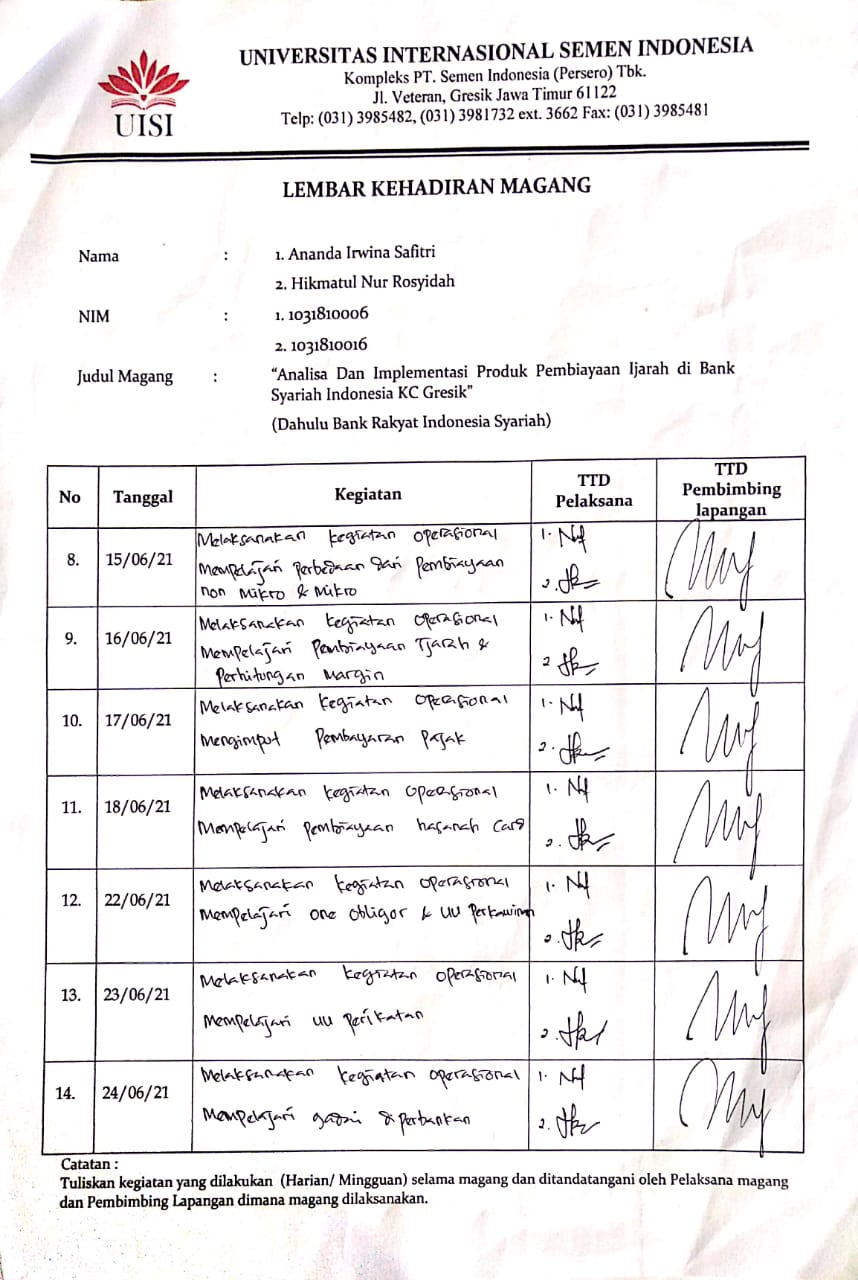 UISI
UNIVERSITAS INTERNASIONAL SEMEN INDONESIA
Kompleks PT. Semen Indonesia (Persero) Tbk.
Jl. Veteran, Gresik Jawa Timur 61122
Telp: (031) 3985482, (031) 3981732 ext. 3662 Fax: (031) 3985481
LEMBAR KEHADIRAN MAGANG
Nama : 1. Ananda Irwina Safitri
2. Hikmatul Nur Rosyidah
NIM : 1. 1031810006
2. 1031810016
Judul Magang : “Analisa Dan Implementasi Produk Pembiayaan Ijarah di Bank
Syariah Indonesia KC Gresik”
(Dahulu Bank Rakyat Indonesia Syariah)
No Tanggal Kegiatan TTD Pelaksana TTD Pembimbing lapangan
8. 15/06/21 Melaksanakan kegiatan operasional 1.
Mempelajari perbedaan dari pembiayaan 2.
non Mikro & Mikro
9. 16/06/21 Melaksanakan kegiatan operasional 1.
Mempelajari Pembiayaan Ijarah & 2
Perhitungan margin
10. 17/06/21 Melaksanakan kegiatan operasional 1.
Mengimput Pembayaran Pajak 2.
11. 18/06/21 Melaksanakan kegiatan operasional 1.
Mempelajari pembiayaan hasanah Card 2.
12. 22/06/21 Melaksanakan kegiatan operasional 1.
Mempelajari one obligor & UU Perkawinan 2.
13. 23/06/21 Melaksanakan kegiatan operasional 1.
Mempelajari UU perikatan 2.
14. 24/06/21 Melaksanakan kegiatan operasional 1.
Mempelajari gadai diperbankan 2.
Catatan :
Tuliskan kegiatan yang dilakukan (Harian/ Mingguan) selama magang dan ditandatangani oleh Pelaksana magang
dan Pembimbing Lapangan dimana magang dilaksanakan.